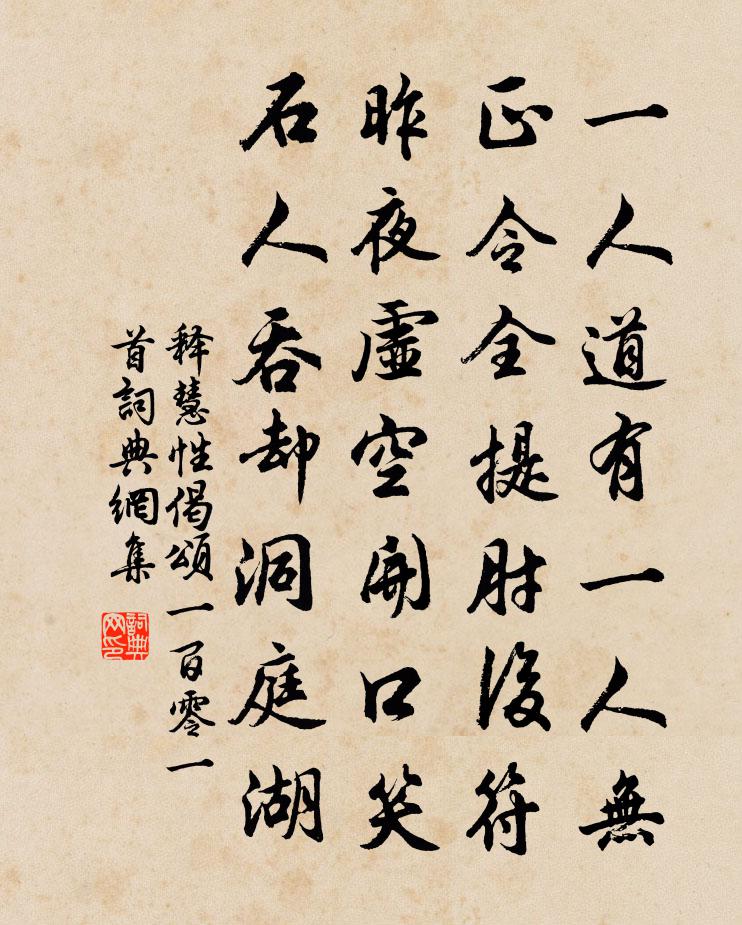 一人道有一人無
正令全提肘後符
昨夜虛空開口笑
石人吞却洞庭湖
释慧性偈頌一百零一
首詞典網集
詞典
网印